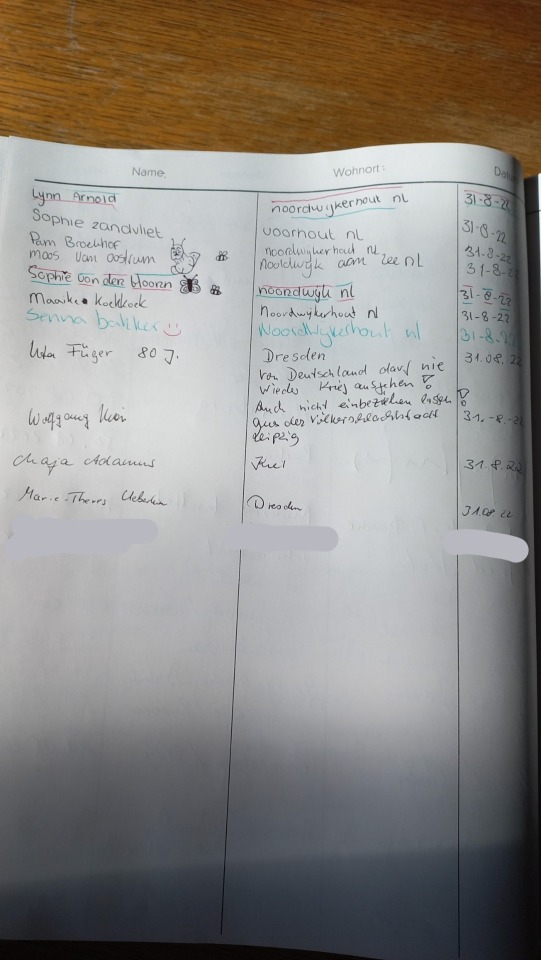 Name: Wohnort: Datu
Lynn Arnold noordwijkerhout nl 31-8-22
Sophie zandvliet voorhout nl 31-8-22
Pam Broekhof noordwijkerhout nl 31-8-22
moos van oostrum Nooldwijk aan zee NL 31-8-2
Sophie van der Hoorn noordwijk nl 31-8-22
Maaike Koekkoek Noordwijkerhout nl 31-8-22
Senna bakker Noordwijkerhout nl 31-8-22
Füger 80 J. Dresden 31.08.22
Von Deutschland darf nie
wieder Krieg ausgehen!
Auch nicht einbeziehen lassen!
Wolfgang aus der Völkerschlachtstadt 31.-8.-22
Leipzig
Adamus Kiel 31.8.22
Marie-Theres Dresden 31.08.22